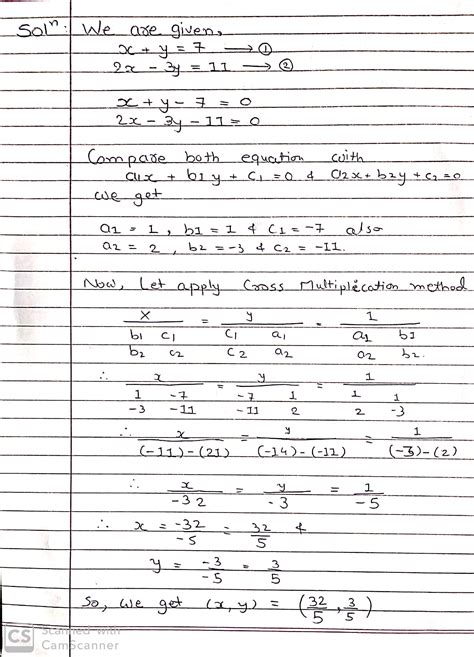 Solⁿ: We are given,
x + y = 7 → ①
2x - 3y = 11 → ②
x + y - 7 = 0
2x - 3y - 11 = 0
Compare both equation with
a1x + b1y + c1 = 0 & a2x + b2y + c2 = 0
we get
a1 = 1 , b1 = 1 & c1 = -7 also
a2 = 2 , b2 = -3 & c2 = -11.
Now, Let apply Cross Multiplication method
x = y = 1
b1 c1 c1 a1 a1 b1
b2 c2 c2 a2 a2 b2.
∴ x = y = 1
1 -7 -7 1 1 1
-3 -11 -11 2 2 -3
∴ x = y = 1
(-11)-(21) (-14)-(-11) (-3)-(2)
∴ x = y = 1
-32 -3 -5
∴ x = -32/-5 = 32/5 &
y = -3/-5 = 3/5
So, we get (x, y) = (32/5, 3/5)
CS Scanned with
CamScanner